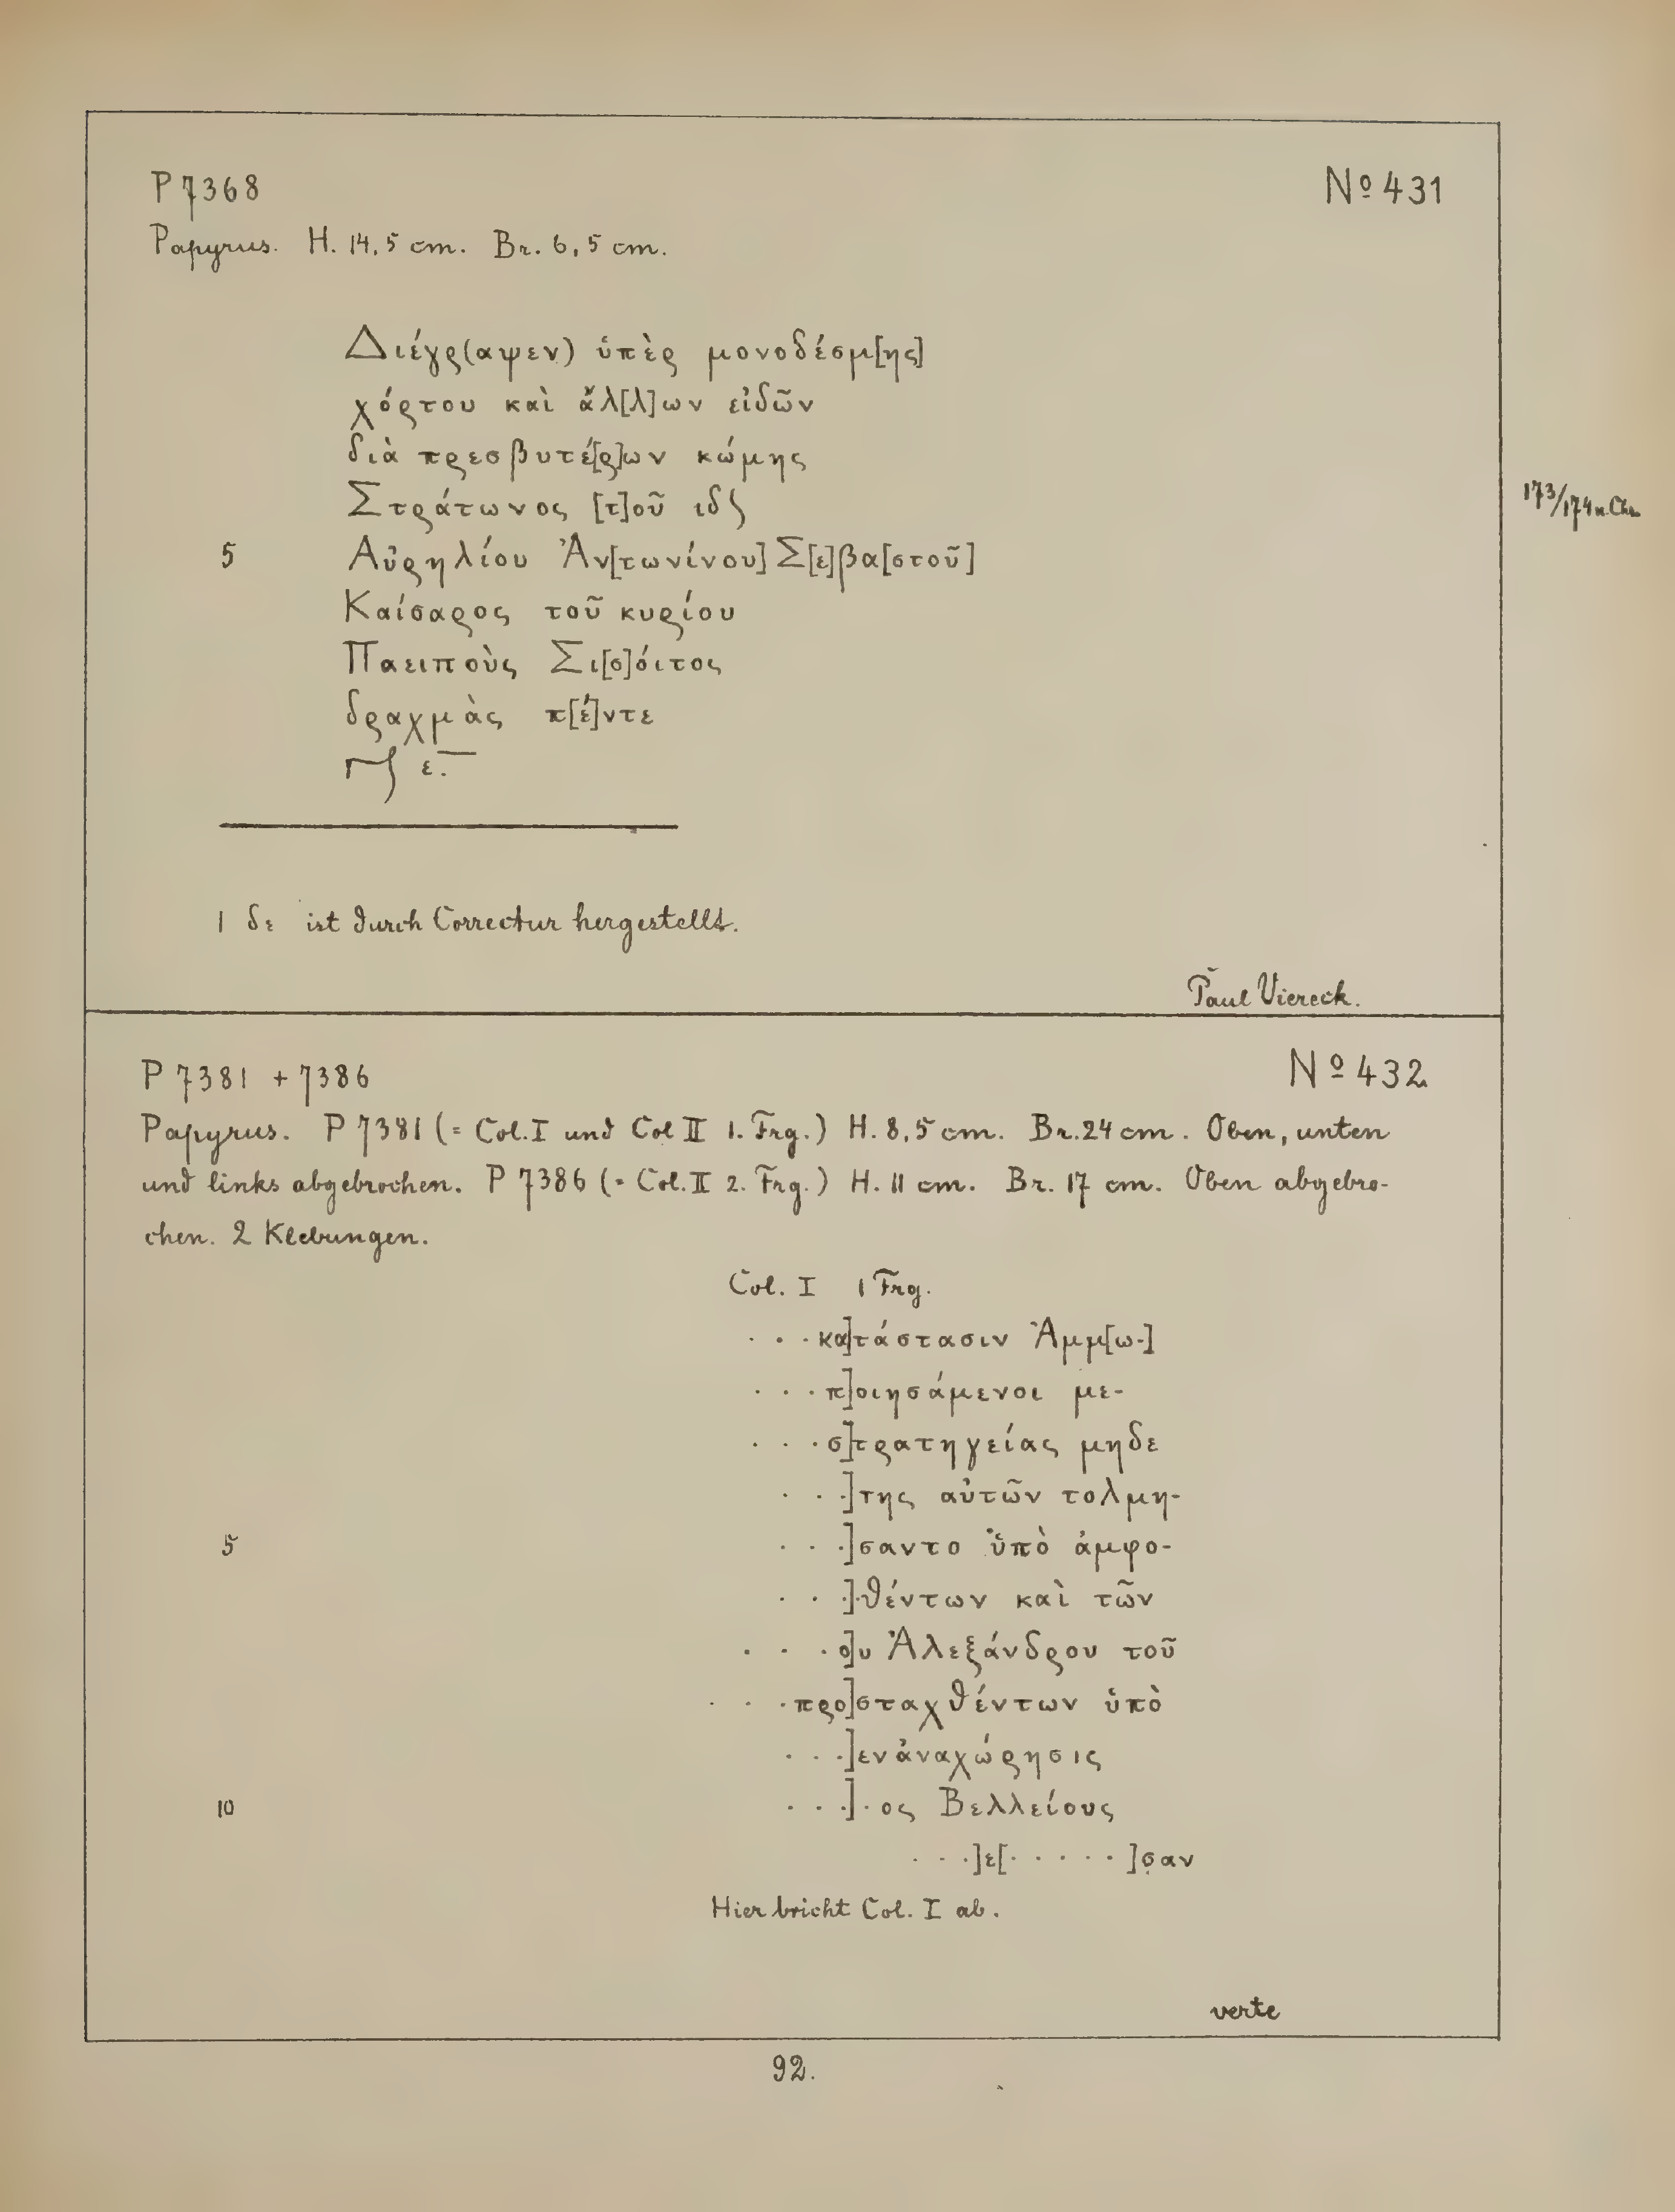 P 7368
Nº 431
Papyrus. H. 14,5 cm. Br. 6,5 cm.
Διέγρ(αψεν) ὑπὲρ μονοδέσμ[ης]
χόρτου καὶ ἄλ[λ]ων εἰδῶν
διὰ πρεσβυτέ[ρ]ων κώμης
Στράτωνος [τ]οῦ ιδ
173/174 n. Chr.
5 Αὐρηλίου Ἀν[τωνίνου] Σ[ε]βα[στοῦ]
Καίσαρος τοῦ κυρίου
Παειποὺς Σι[σ]όιτος
δραχμὰς π[έ]ντε
ε.
1 δε ist durch Correctur hergestellt.
Paul Viereck.
P 7381 + 7386
Nº 432
Papyrus. P 7381 (= Col. I und Col II 1. Frg.) H. 8,5 cm. Br. 24 cm. Oben, unten
und links abgebrochen. P 7386 (= Col. II 2. Frg.) H. 11 cm. Br. 17 cm. Oben abgebro-
chen. 2 Klebungen.
Col. I 1 Frg.
. . . κα]τάστασιν Ἀμμ[ω-]
. . . π]οιησάμενοι με-
. . . σ]τρατηγείας μηδε
. . .]της αὐτῶν τολμη-
5 . . .]σαντο ὑπὸ ἀμφο-
. . .]θέντων καὶ τῶν
. . . ο]υ Ἀλεξάνδρου τοῦ
. . . προ]σταχθέντων ὑπὸ
. . .]εν ἀναχώρησις
10 . . .] . ος Βελλείους
. . .]ε[. . . . .]σαν
Hier bricht Col. I ab.
verte
92.